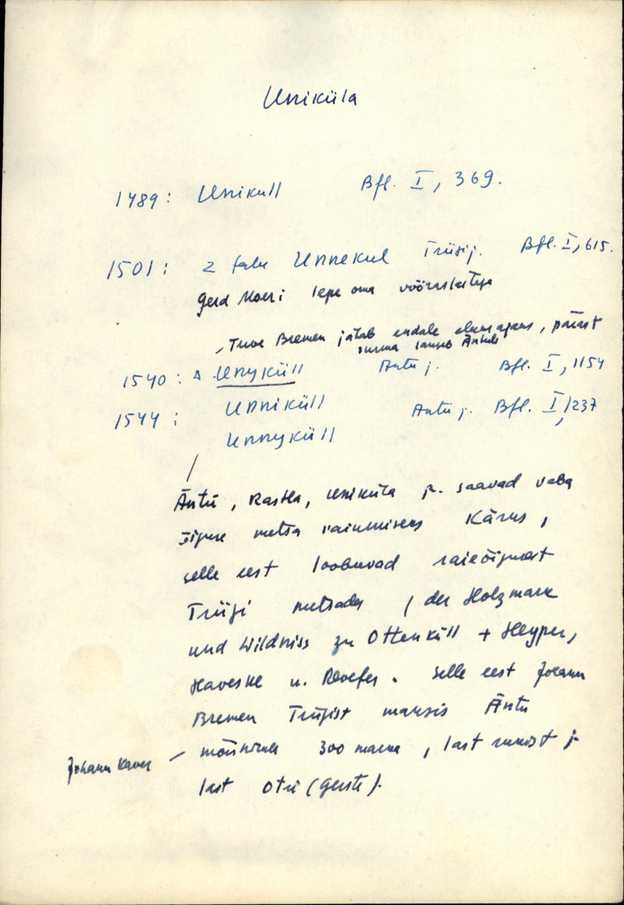 Uniküla
1489: Unikull Bfl. I, 369.
1501: 2 talu Unnekul Triigi j. Bfl. I, 615.
Gerd Moeri lepe oma võõraslastega
, Tuve Bremen jätab endale eluks ajaks, pärast
surma langeb Äntule
1540: A Unyküll Äntu j. Bfl. I, 1154
1544: Unniküll Äntu j. Bfl. I, 1237
Unnyküll
Äntu, Rastla, Uniküla j. saavad vaba
õiguse metsa raiumiseks Kärus,
selle eest loobuvad raieõigusest
Triigi metsades (der Holzmark
und Wildniss zu Ottenküll + Heyper,
Haveske u. Revefer. Selle eest Johann
Bremen Triigist maksis Äntu
Johann Kaver – mõisnikule 300 marka, 1 last rukist j.
last otri (gerste).